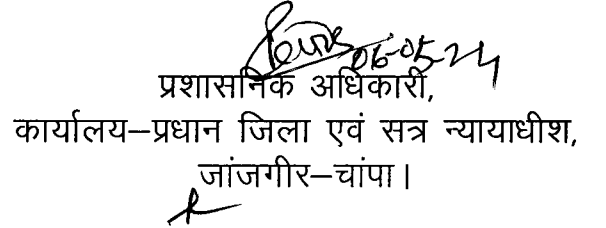 06-05-24
प्रशासनिक अधिकारी,
कार्यालय–प्रधान जिला एवं सत्र न्यायाधीश,
जांजगीर–चांपा।